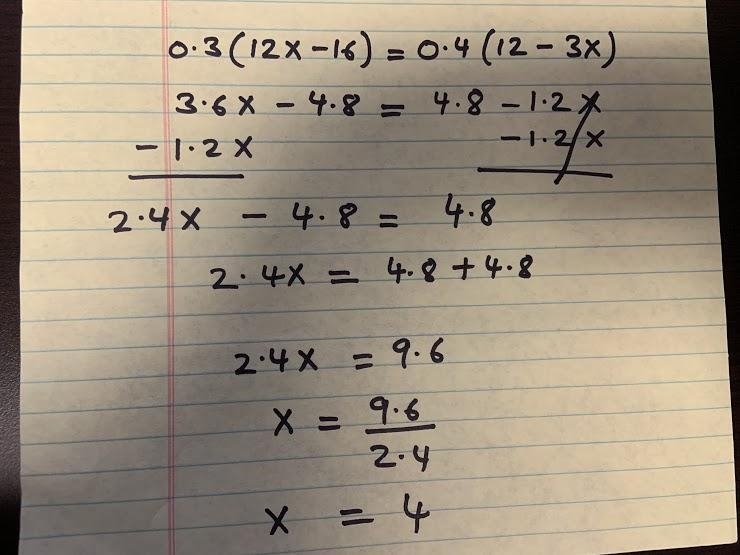 0.3(12x-16) = 0.4(12-3x)
3.6x - 4.8 = 4.8 - 1.2x
- 1.2x - 1.2x
2.4x - 4.8 = 4.8
2.4x = 4.8 + 4.8
2.4x = 9.6
x = 9.6/2.4
x = 4